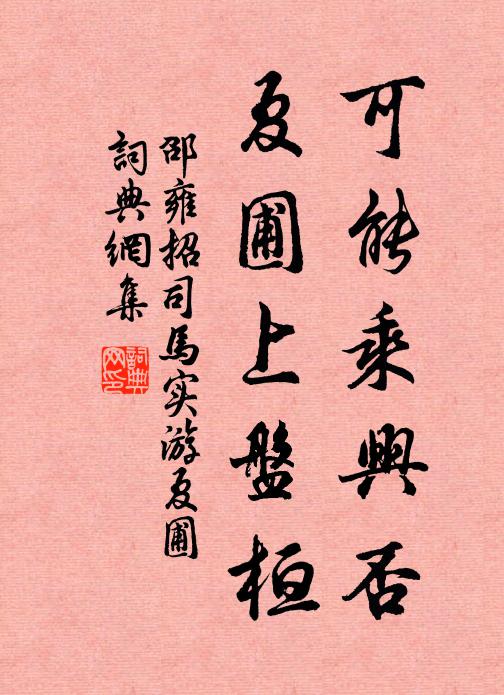 可能乘興否
夏圃上盤桓
邵雍招司馬实游夏圃
詞典網集
詞典
网印